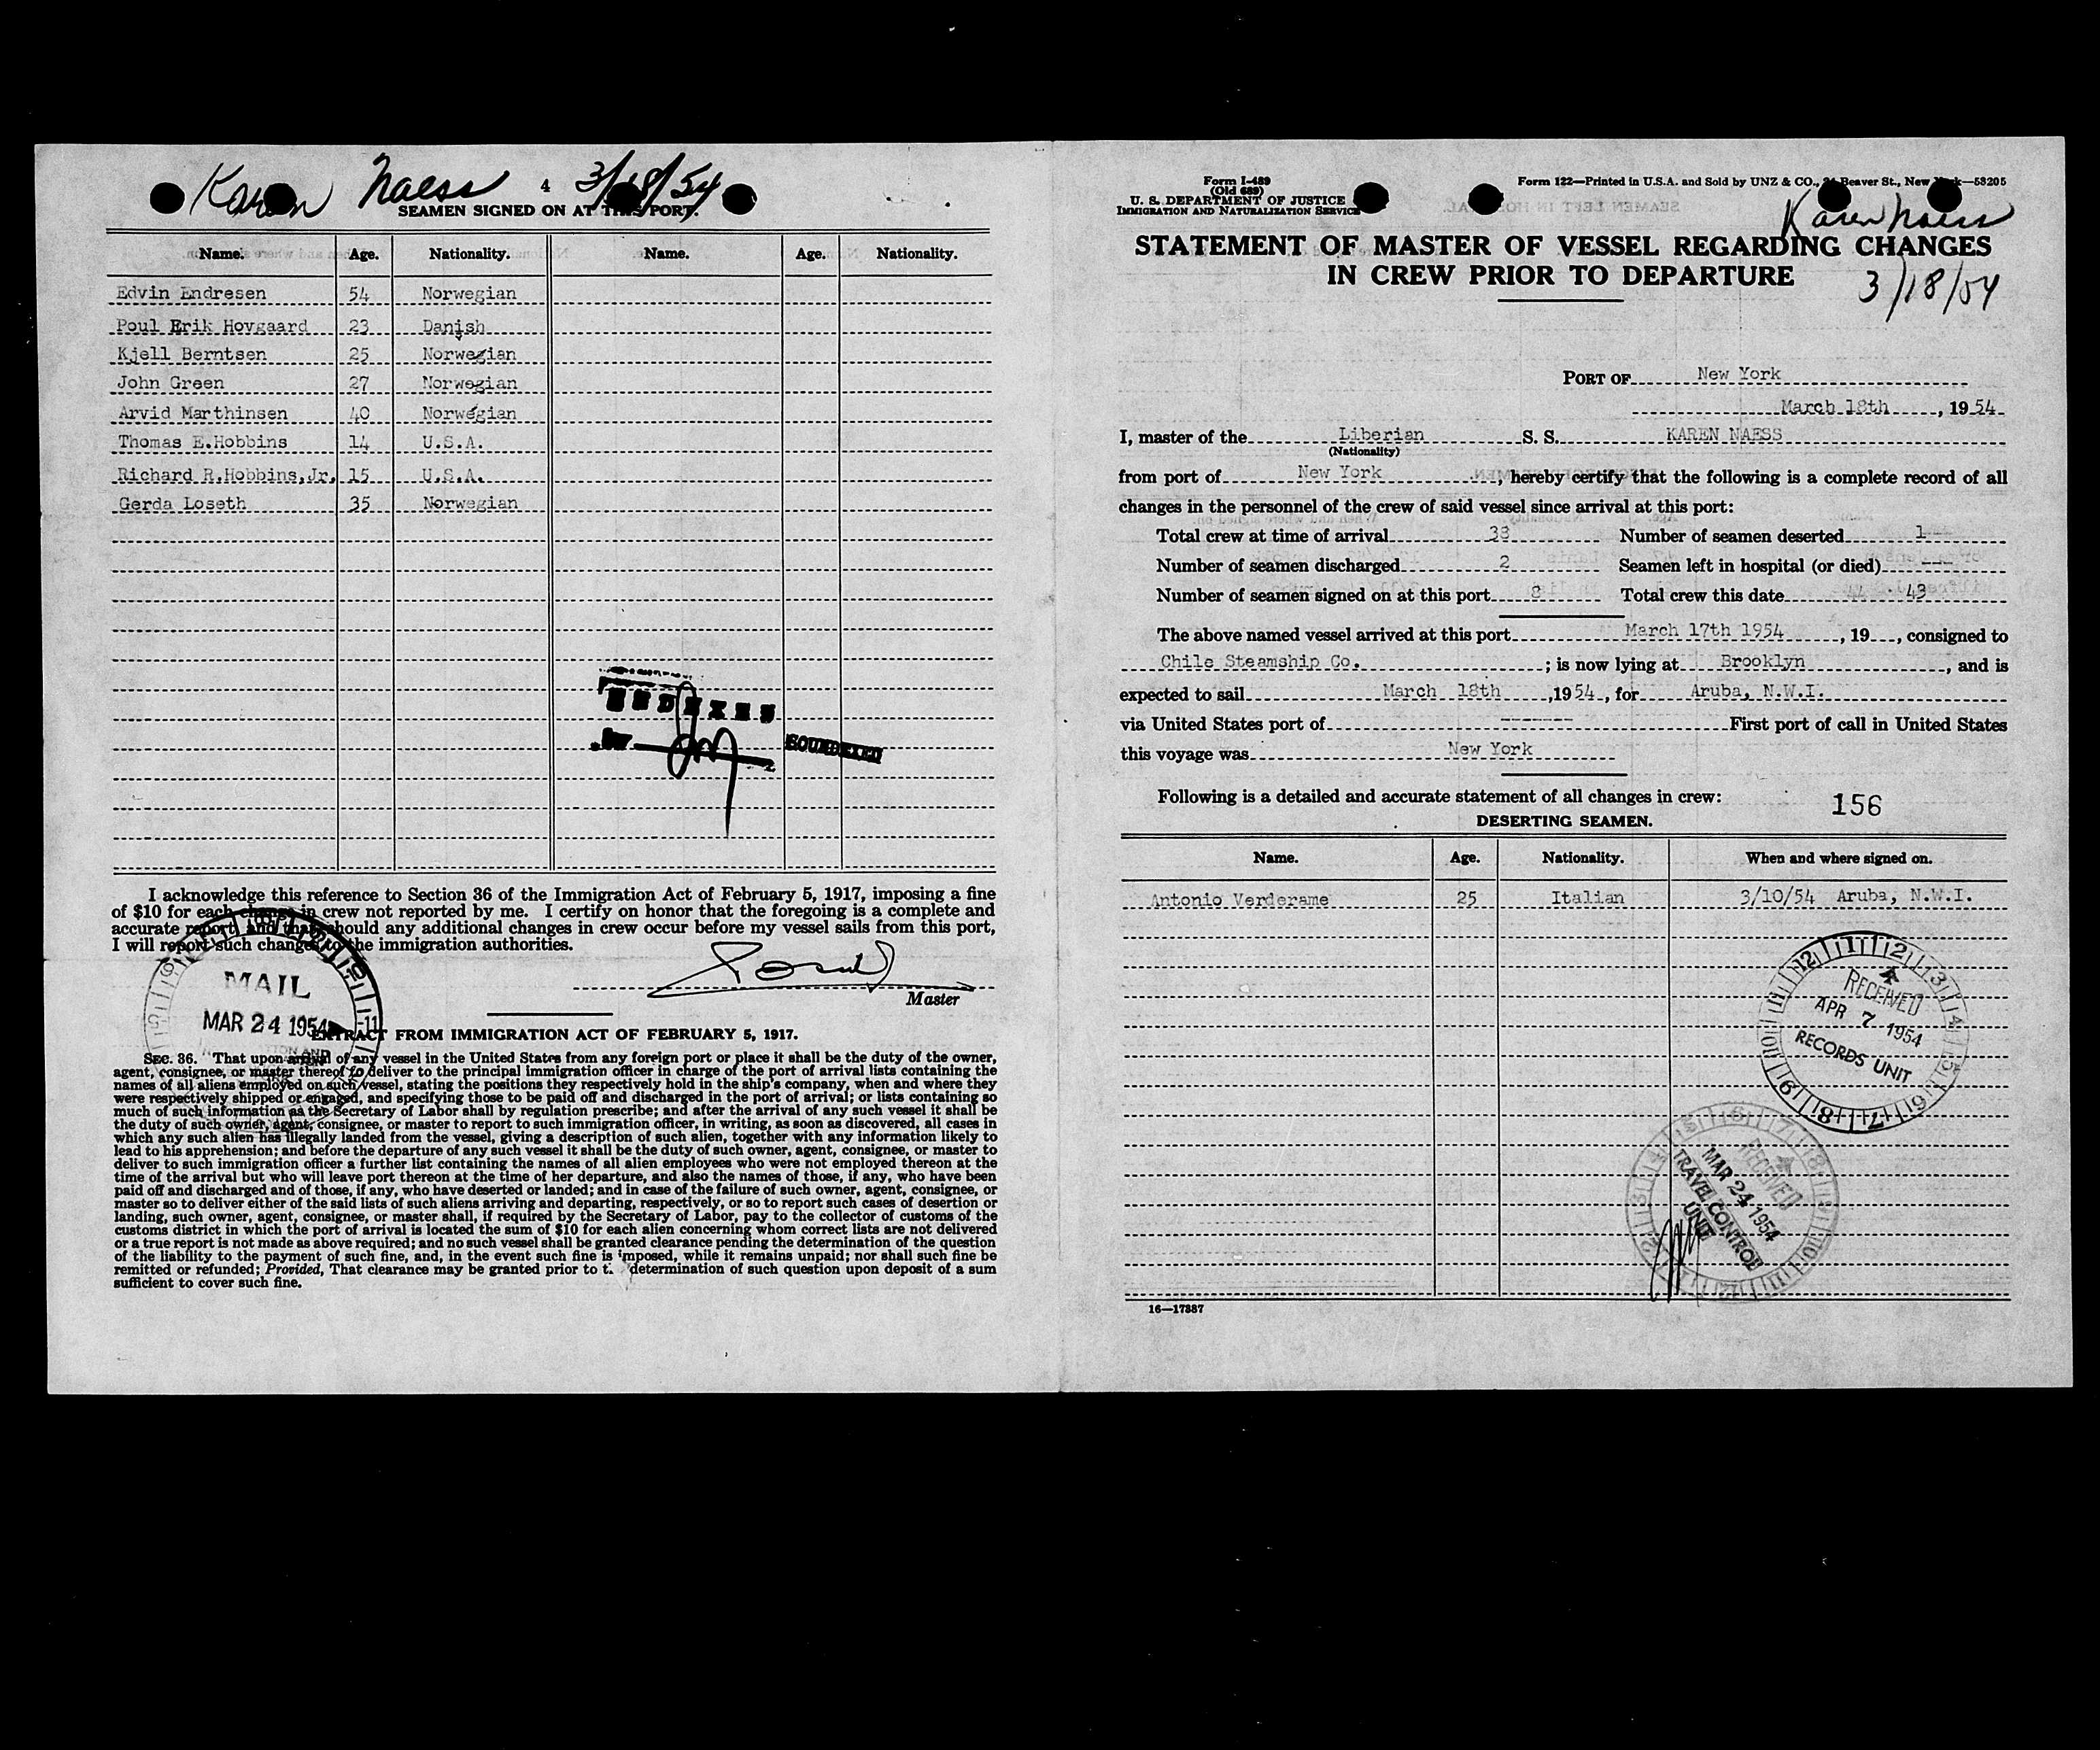 Karen Naess 4 3/18/54
SEAMEN SIGNED ON AT THIS PORT.
Name. Age. Nationality. Name. Age. Nationality.
Edvin Endresen 54 Norwegian
Poul Erik Hovgaard 23 Danish
Kjell Berntsen 25 Norwegian
John Green 27 Norwegian
Arvid Marthinsen 40 Norwegian
Thomas E.Hobbins 14 U.S.A.
Richard R.Hobbins,Jr. 15 U.S.A.
Gerda Loseth 35 Norwegian
I acknowledge this reference to Section 36 of the Immigration Act of February 5, 1917, imposing a fine
of $10 for each change in crew not reported by me. I certify on honor that the foregoing is a complete and
accurate report, and that should any additional changes in crew occur before my vessel sails from this port,
I will report such changes to the immigration authorities.
Master
MAIL
MAR 24 1954
EXTRACT FROM IMMIGRATION ACT OF FEBRUARY 5, 1917.
SEC. 36. That upon arrival of any vessel in the United States from any foreign port or place it shall be the duty of the owner,
agent, consignee, or master thereof to deliver to the principal immigration officer in charge of the port of arrival lists containing the
names of all aliens employed on such vessel, stating the positions they respectively hold in the ship's company, when and where they
were respectively shipped or engaged, and specifying those to be paid off and discharged in the port of arrival; or lists containing so
much of such information as the Secretary of Labor shall by regulation prescribe; and after the arrival of any such vessel it shall be
the duty of such owner, agent, consignee, or master to report to such immigration officer, in writing, as soon as discovered, all cases in
which any such alien has illegally landed from the vessel, giving a description of such alien, together with any information likely to
lead to his apprehension; and before the departure of any such vessel it shall be the duty of such owner, agent, consignee, or master to
deliver to such immigration officer a further list containing the names of all alien employees who were not employed thereon at the
time of the arrival but who will leave port thereon at the time of her departure, and also the names of those, if any, who have been
paid off and discharged and of those, if any, who have deserted or landed; and in case of the failure of such owner, agent, consignee, or
master so to deliver either of the said lists of such aliens arriving and departing, respectively, or so to report such cases of desertion or
landing, such owner, agent, consignee, or master shall, if required by the Secretary of Labor, pay to the collector of customs of the
customs district in which the port of arrival is located the sum of $10 for each alien concerning whom correct lists are not delivered
or a true report is not made as above required; and no such vessel shall be granted clearance pending the determination of the question
of the liability to the payment of such fine, and, in the event such fine is imposed, while it remains unpaid; nor shall such fine be
remitted or refunded; Provided, That clearance may be granted prior to determination of such question upon deposit of a sum
sufficient to cover such fine.
Form I-489
(Old 689)
U. S. DEPARTMENT OF JUSTICE
IMMIGRATION AND NATURALIZATION SERVICE
Form 122—Printed in U.S.A. and Sold by UNZ & CO., Beaver St., New York—53205
Karen Naess
STATEMENT OF MASTER OF VESSEL REGARDING CHANGES
IN CREW PRIOR TO DEPARTURE
3/18/54
PORT OF New York
March 18th, 1954
I, master of the Liberian S. S. KAREN NAESS
(Nationality)
from port of New York, hereby certify that the following is a complete record of all
changes in the personnel of the crew of said vessel since arrival at this port:
Total crew at time of arrival 38 Number of seamen deserted 1
Number of seamen discharged 2 Seamen left in hospital (or died) ---
Number of seamen signed on at this port 8 Total crew this date 43
The above named vessel arrived at this port March 17th 1954, 19, consigned to
Chile Steamship Co.; is now lying at Brooklyn, and is
expected to sail March 18th, 1954, for Aruba, N.W.I.
via United States port of ------- First port of call in United States
this voyage was New York
Following is a detailed and accurate statement of all changes in crew: 156
DESERTING SEAMEN.
Name. Age. Nationality. When and where signed on.
Antonio Verderame 25 Italian 3/10/54 Aruba, N.W.I.
RECEIVED
APR 7 1954
RECORDS UNIT
RECEIVED
MAR 24 1954
TRAVEL CONTROL
UNIT
16—17887